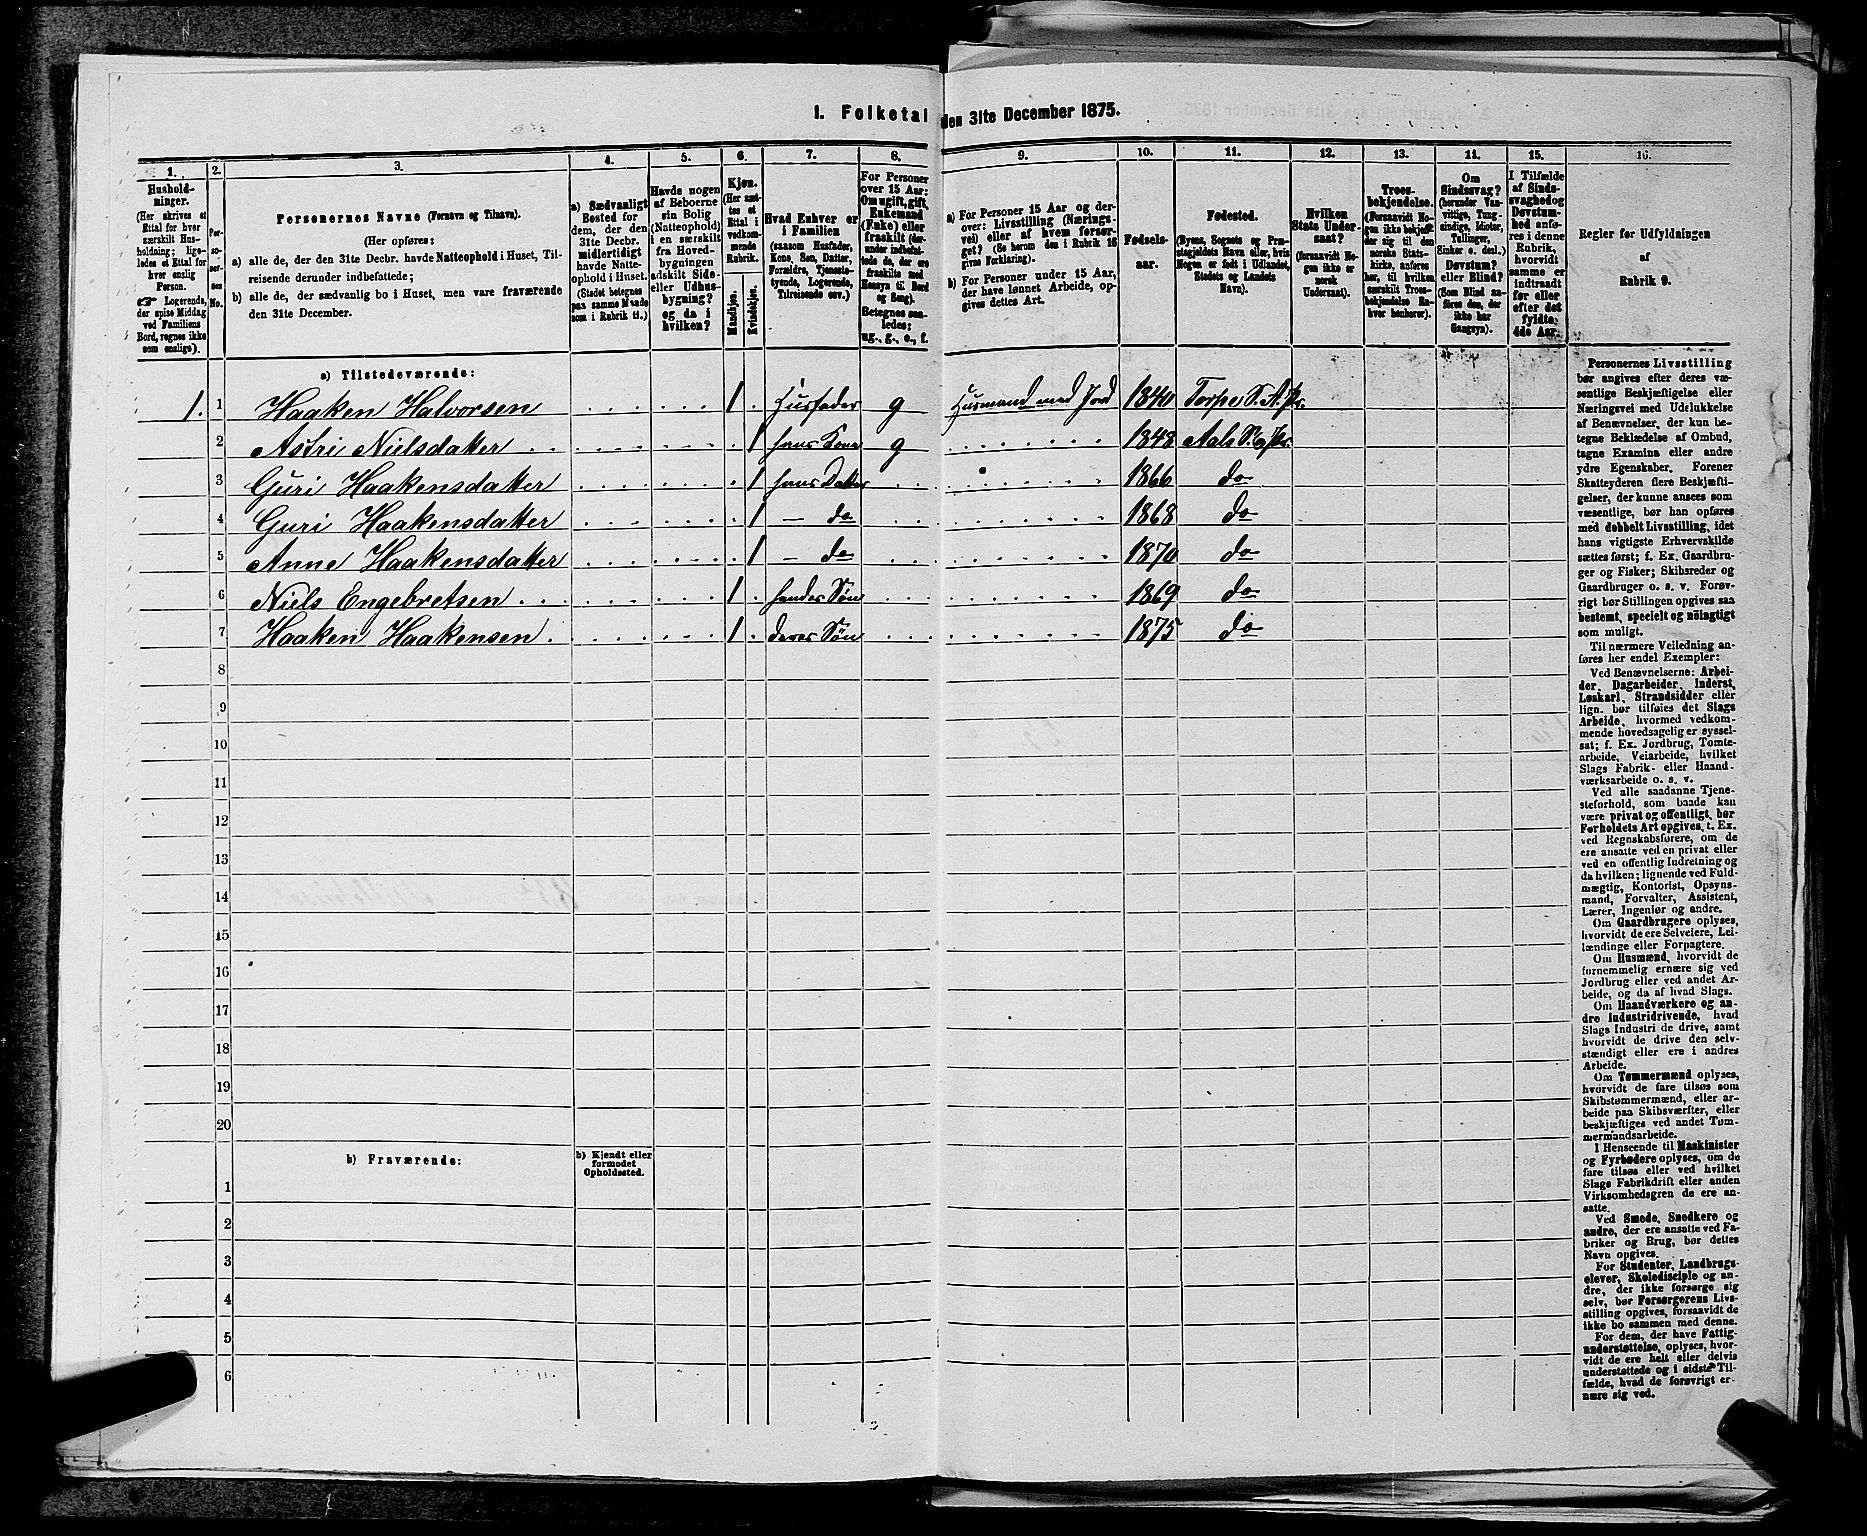 1. Folketal den 31te December 1875.
1. 2. 3. 4. 5. 6. 7. 8. 9. 10. 11. 12. 13. 14. 15. 16.
Hushold-
ninger.
(Her skrives et
Ettal for hver
særskilt Hus-
holdning; lige-
ledes et Ettal for
hver enslig
Person.
☞ Logerende,
der spise Middag
ved Familiens
Bord, regnes ikke
som enslige).
Per-
so-
ner-
nes
No.
Personernes Navne (Fornavn og Tilnavn).
(Her opføres:
a) alle de, der den 31te Decbr. havde Natteophold i Huset, Til-
reisende derunder indbefattede;
b) alle de, der sædvanlig bo i Huset, men vare fraværende
den 31te December.
a) Sædvanligt
Bosted for
dem, der den
31te Decbr.
midlertidigt
havde Natte-
ophold i Huset.
(Stedet betegnes
paa samme Maade
som i Rubrik 11.)
Havde nogen
af Beboerne
sin Bolig
(Natteophold)
i en særskilt
fra Hoved-
bygningen
adskilt Side-
eller Udhus-
bygning?
og da i
hvilken?
Kjøn.
(Her sæt-
tes et
Ettal i
vedkom-
mende
Rubrik.
Mandkjøn.
Kvindekjøn.
Hvad Enhver er
i Familien
(saasom Husfader,
Kone, Søn, Datter,
Forældre, Tjeneste-
tyende, Logerende,
Tilreisende osv.)
For Personer
over 15 Aar:
Om ugift, gift,
Enkemand
(Enke) eller
fraskilt (der-
under indbefat-
tede de, der ere
fraskilte med
Hensyn til Bord
og Seng).
Betegnes saa-
ledes:
ug., g., e., f.
a) For Personer 15 Aar og der-
over: Livsstilling (Nærings-
vei) eller af hvem forsør-
get? (Se herom den i Rubrik 16
givne Forklaring).
b) For Personer under 15 Aar,
der have lønnet Arbeide, op-
gives dettes Art.
Fødsels-
aar.
Fødested.
(Byens, Sognets og Præ-
stegjeldets Navn eller, hvis
Nogen er født i Udlandet,
Stedets og Landets
Navn).
Hvilken
Stats Under-
saat?
(forsaavidt No-
gen ikke er
norsk
Undersaat).
Troes-
bekjendelse.
(Forsaavidt No-
gen ikke bekjen-
der sig til den
norske Stats-
kirke, anføres
her, til hvilken
særskilt Troes-
bekjendelse En-
hver henhører).
Om
Sindssvag?
(herunder Van-
vittige, Tung-
sindige, Idioter,
Tullinger,
Sinker o. desl.)
Døvstum?
eller Blind?
(Som Blind an-
føres den, der
ikke har
Gangsyn).
I Tilfælde
af Sinds-
svaghed og
Døvstum-
hed anfø-
res i denne
Rubrik,
hvorvidt
samme er
indtraadt
før eller
efter det
fyldte
4de Aar.
Regler for Udfyldningen
af
Rubrik 9.
a) Tilstedeværende:
1. 1 Haaken Halvorsen 1 Husfader g Husmand med Jord 1840 Torpe S. A. Pr.
2 Astri Nielsdatter 1 hans Kone g 1848 Aals S. & Pr.
3 Guri Haakensdatter 1 hans Datter 1866 do
4 Guri Haakensdatter 1 – do 1868 do
5 Anne Haakensdatter 1 – do 1870 do
6 Niels Engebretsen 1 hendes Søn 1869 do
7 Haaken Haakensen 1 deres Søn 1875 do
8
9
10
11
12
13
14
15
16
17
18
19
20
b) Fraværende:
b) Kjendt eller
formodet
Opholdssted.
1
2
3
4
5
6
Personernes Livsstilling
bør angives efter deres væ-
sentlige Beskjæftigelse eller
Næringsvei med Udelukkelse
af Benævnelser, der kun be-
tegne Beklædelse af Ombud,
tagne Examina eller andre
ydre Egenskaber. Forener
Skatteyderen flere Beskjæfti-
gelser, der kunne ansees som
væsentlige, bør han opføres
med dobbelt Livsstilling, idet
hans vigtigste Erhvervskilde
sættes først; f. Ex. Gaardbru-
ger og Fisker; Skibsreder og
Gaardbruger o. s. v. Forøv-
rigt bør Stillingen opgives saa
bestemt, specielt og nöiagtigt
som muligt.
Til nærmere Veiledning an-
føres her endel Exempler:
Ved Benævnelserne: Arbei-
der, Dagarbeider, Inderst,
Løskarl, Strandsidder eller
lign. bør tilføies det Slags
Arbeide, hvormed vedkom-
mende hovedsagelig er syssel-
sat; f. Ex. Jordbrug, Tomte-
arbeide, Veiarbeide, hvilket
Slags Fabrik- eller Haand-
værksarbeide o. s. v.
Ved alle saadanne Tjene-
steforhold, som baade kan
være privat og offentligt, bør
Forholdets Art opgives, t. Ex.
ved Regnskabsførere, om de
ere ansatte ved en privat eller
ved en offentlig Indretning og
da hvilken; lignende ved Fuld-
mægtig, Kontorist, Opsyns-
mand, Forvalter, Assistent,
Lærer, Ingeniør og andre.
Om Gaardbrugere oplyses,
hvorvidt de ere Selveiere, Lei-
lændinge eller Forpagtere.
Om Husmænd, hvorvidt de
fornemmelig ernære sig ved
Jordbrug eller ved andet Ar-
beide, og da af hvad Slags.
Om Haandværkere og an-
dre Industridrivende, hvad
Slags Industri de drive, samt
hvorvidt de drive den selv-
stændigt eller ere i andres
Arbeide.
Om Tømmermænd oplyses,
hvorvidt de fare tilsøs som
Skibstømmermænd, eller ar-
beide paa Skibsværfter, eller
beskjæftiges ved andet Tøm-
mermandsarbeide.
I Henseende til Maskinister
og Fyrbødere oplyses, om de
fare tilsøs eller ved hvilket
Slags Fabrikdrift eller anden
Virksomhedsgren de ere an-
satte.
Ved Smede, Snedkere og
andre, der ere ansatte ved Fa-
briker og Brug, bør dettes
Navn opgives.
For Studenter, Landbrugs-
elever, Skoledisciple og an-
dre, der ikke forsørge sig
selv, bør Forsørgerens Livs-
stilling opgives, forsaavidt de
ikke bo sammen med denne.
For dem, der have Fattig-
understøttelse, oplyses, hvor-
vidt de ere helt eller delvis
understøttede og i sidste Til-
fælde, hvad de forøvrigt er-
nære sig ved.